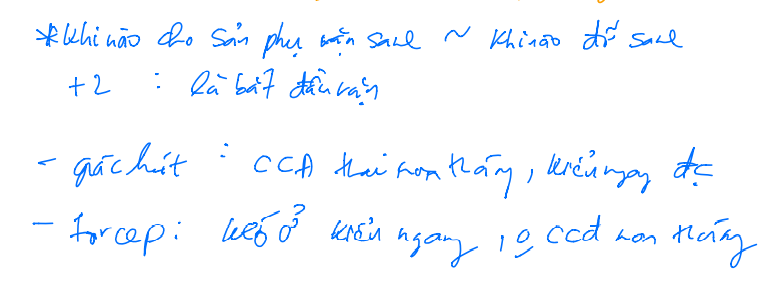 * Khi nào cho sản phụ rặn sanh ~ khi nào đỡ sanh
+2 : là bắt đầu rặn
- giác hút : CCĐ thai non tháng, kiểu ngang đc
- forcep : kéo ở kiểu ngang, 0 CCĐ non tháng